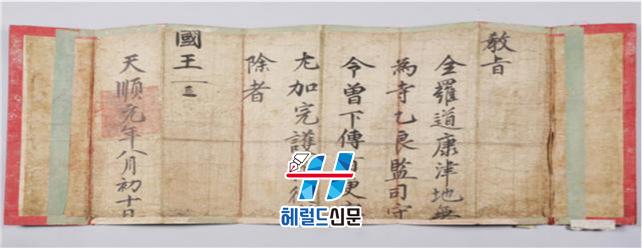 教旨
全羅道康津地無
為寺乙良監司守
令曾下傳旨更
尤加完護
除者
國王
天順元年八月初十日
헤럴드신문